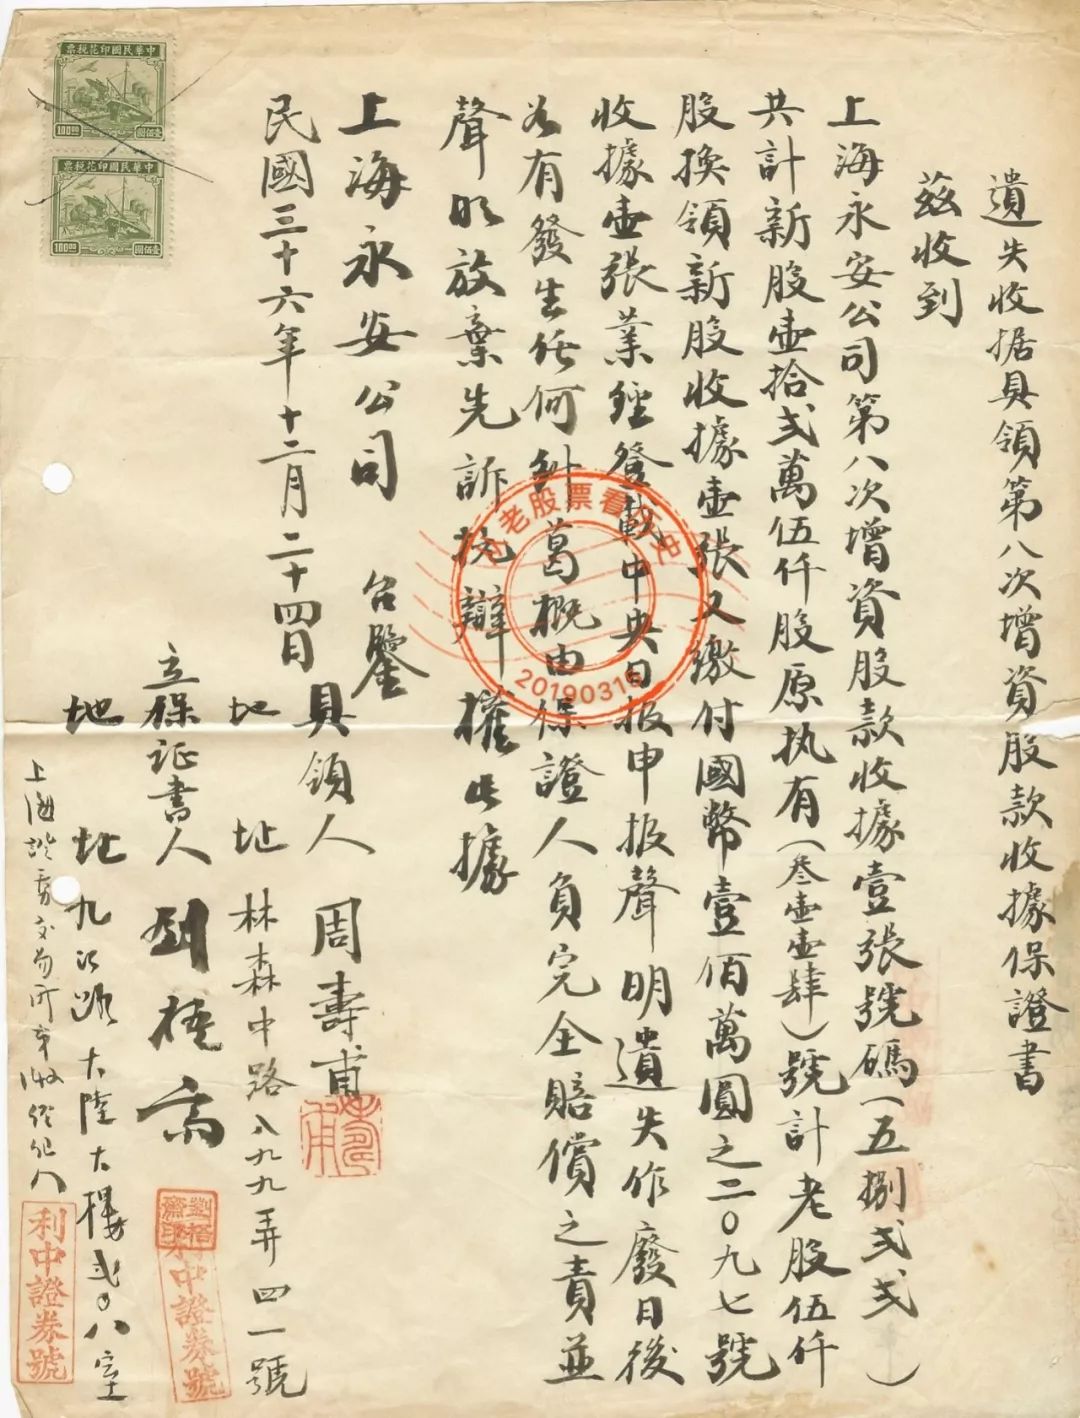 遺失收据具領第八次增資股款收據保證書
茲收到
上海永安公司第八次增資股款收據壹張號碼(五捌弍弍)
共計新股壹拾弍萬伍仟股原执有(叁壹壹肆)號計老股伍仟
股換領新股收據壹張又繳付國幣壹佰萬圓之二〇九七號
收據壹張業經登載中央日报申报聲明遺失作廢日後
如有發生任何糾葛概由保證人負完全賠償之責並
聲明放棄先訴抗辯權此據
上海永安公司 台鑒
民國三十六年十二月二十四日
具領人 周壽甫
地址 林森中路八九九弄四一號
立保证書人 劉梧齋
地址 九江路大陸大樓弍〇八室
上海證券交易所第142經紀人
劉梧齋印
利中證券號
利中證券號
中華民國印花税票
100.00
壹佰圓
中華民國印花税票
100.00
壹佰圓
老股票看历史
20190316